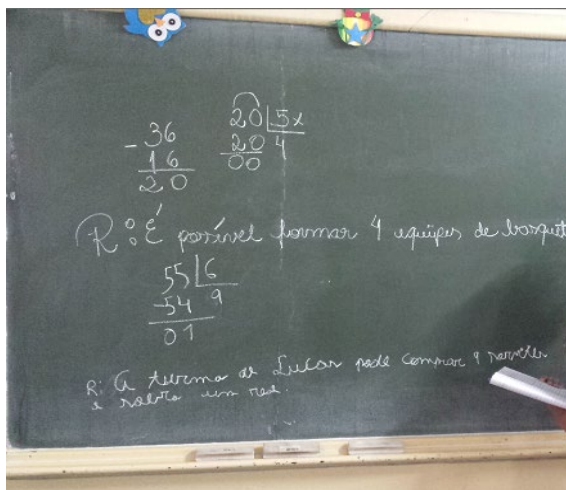 - 36
16
20
20 5x
20 4
00
R: É possível formar 4 equipes de basquet
55 6
-54 9
01
R: A turma de Lucas pode comprar 9 sorvetes
e sobra um real.